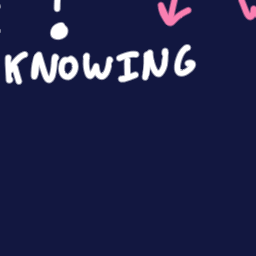 !
KNOWING